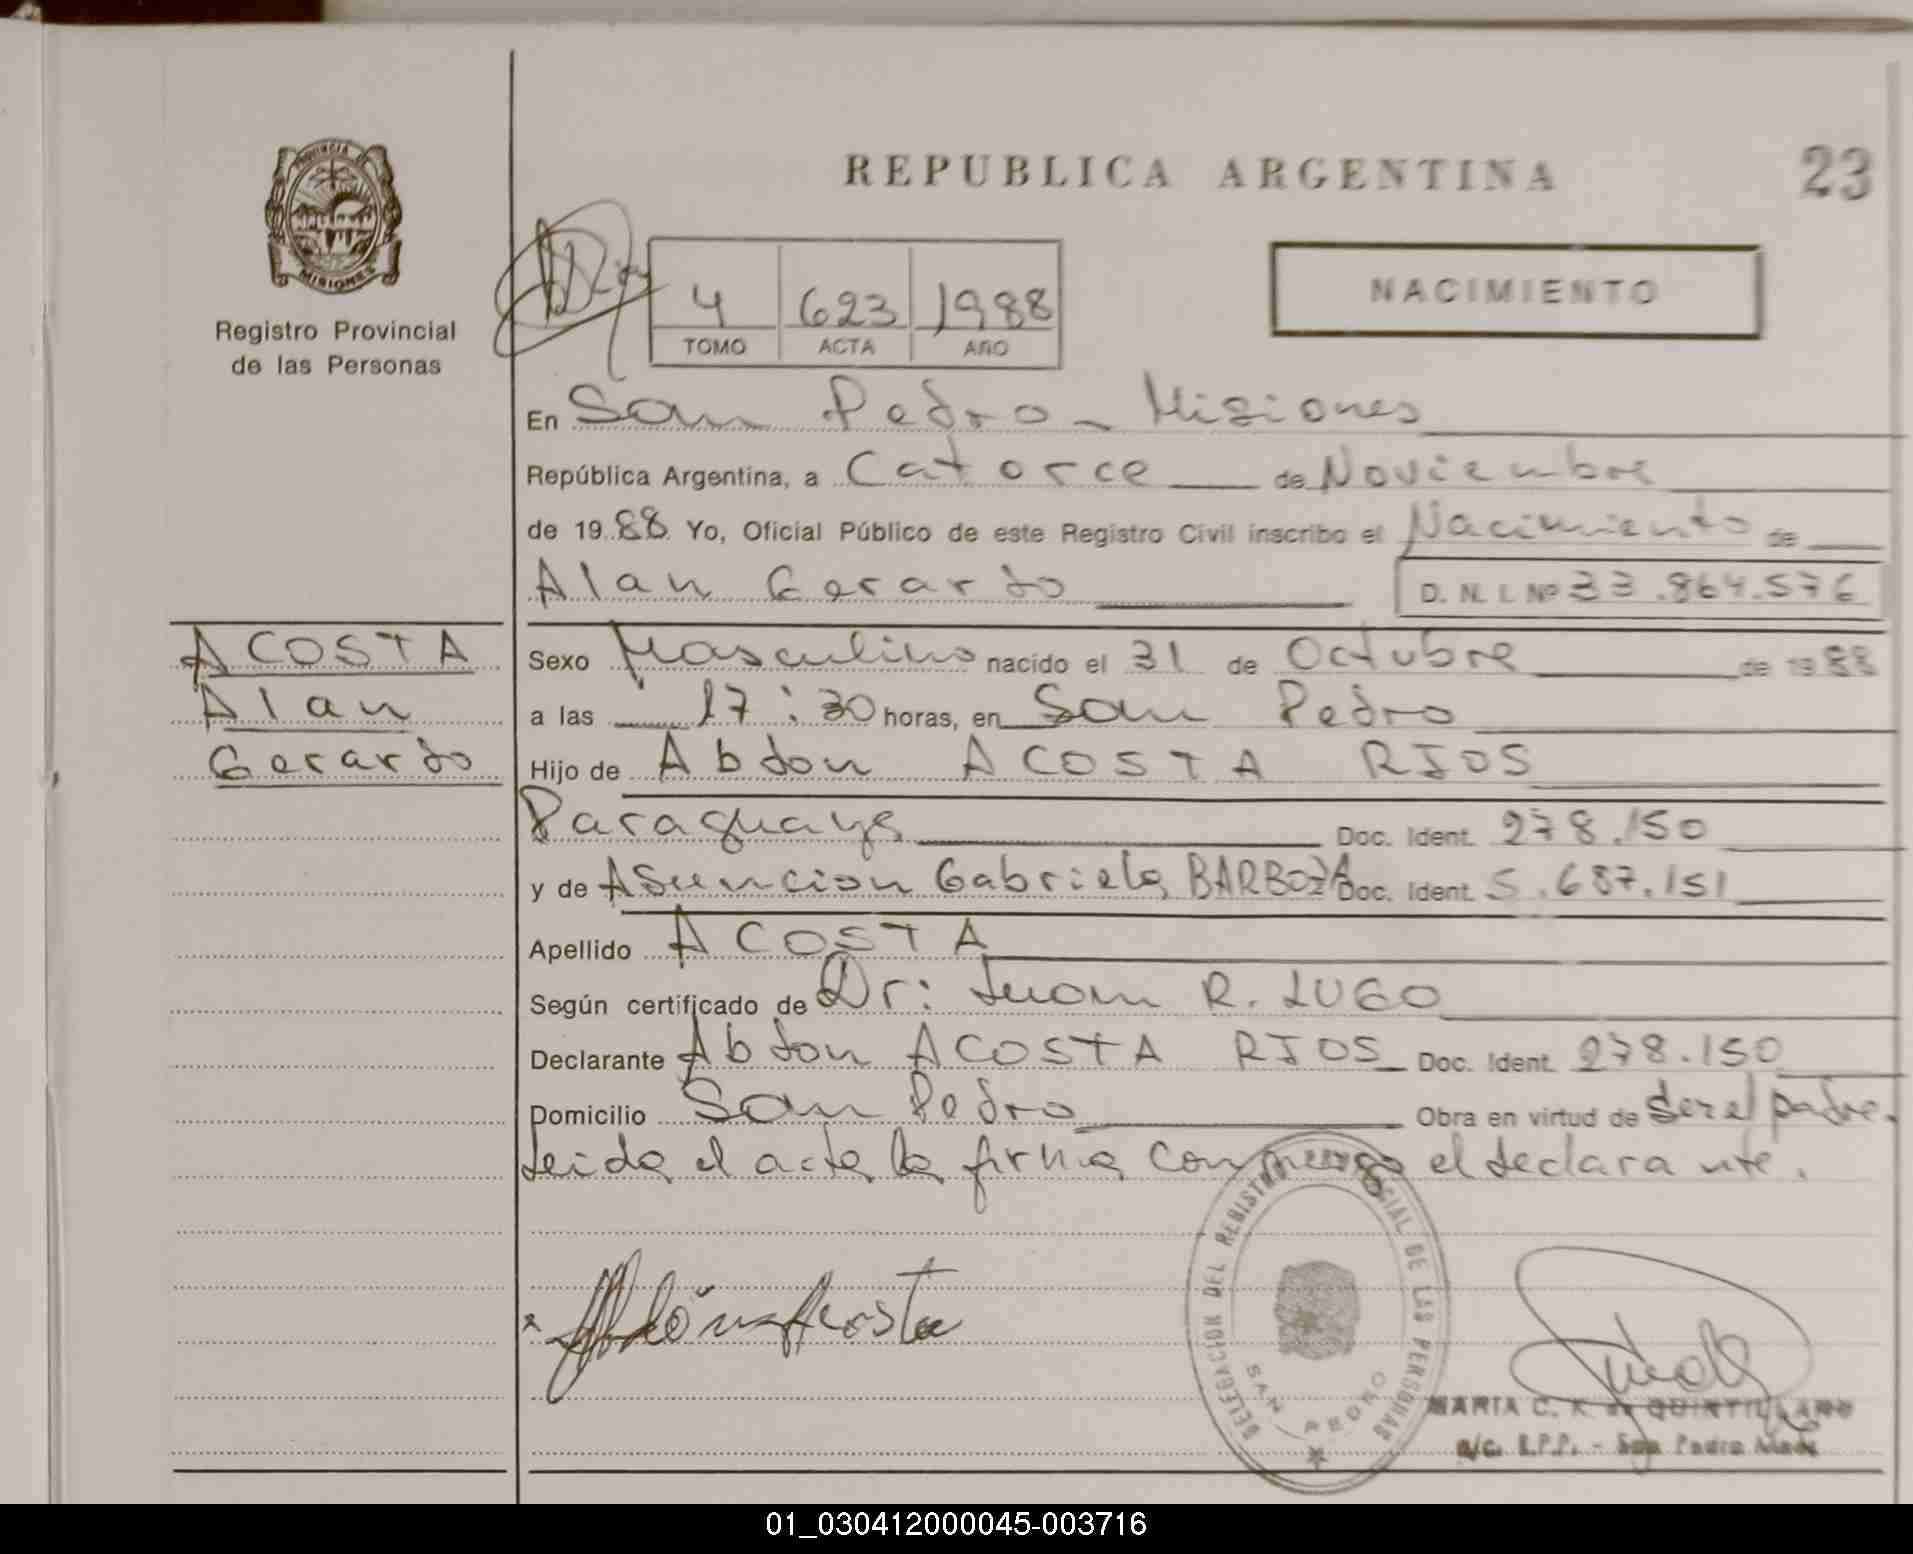 PROVINCIA DE
MISIONES
Registro Provincial
de las Personas
REPUBLICA ARGENTINA
23
4 623 1988
TOMO ACTA AÑO
NACIMIENTO
En San Pedro - Misiones
República Argentina, a Catorce de Noviembre
de 1988 Yo, Oficial Público de este Registro Civil inscribo el Nacimiento de
Alan Gerardo
D. N. I. Nº 33.864.576
ACOSTA
Alan
Gerardo
Sexo Masculino nacido el 31 de Octubre de 1988
a las 17:30 horas, en San Pedro
Hijo de Abdon ACOSTA RIOS
Paraguaya Doc. Ident. 278.150
y de Asuncion Gabriela BARBOZA Doc. Ident. 5.687.151
Apellido ACOSTA
Según certificado de Dr: Juan R. LUGO
Declarante Abdon ACOSTA RIOS Doc. Ident. 278.150
Domicilio San Pedro Obra en virtud de ser el padre.
Leida el acta la firma conmigo el declarante.
Abdón Acosta
DELEGACION DEL REGISTRO PROVINCIAL DE LAS PERSONAS
SAN PEDRO
MARIA C. K. de QUINTILLANO
a/c. R.P.P. - San Pedro Mnes
01_030412000045-003716